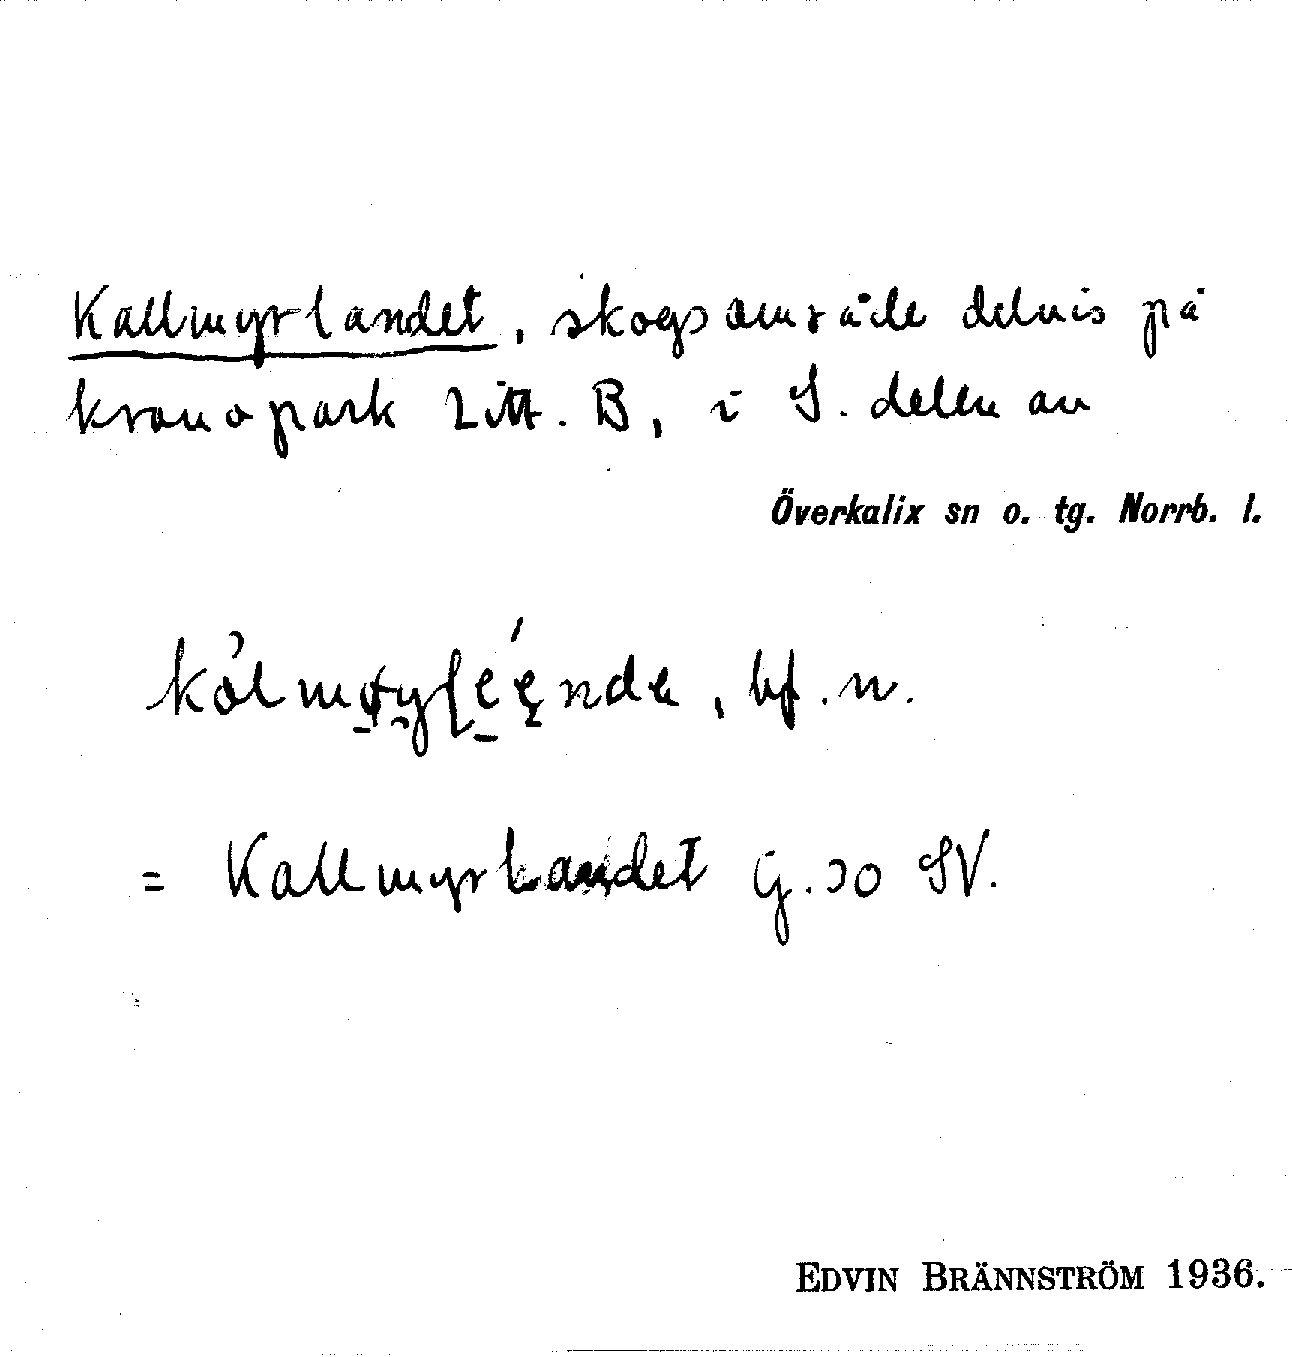 Kallmyrlandet, skogsområde delvis på
kronopark Litt. B, i S. delen av
Överkalix sn o. tg. Norrb. l.
, bf. n.
= Kallmyrlandet G. 30 SV.
EDVIN BRÄNNSTRÖM 1936.